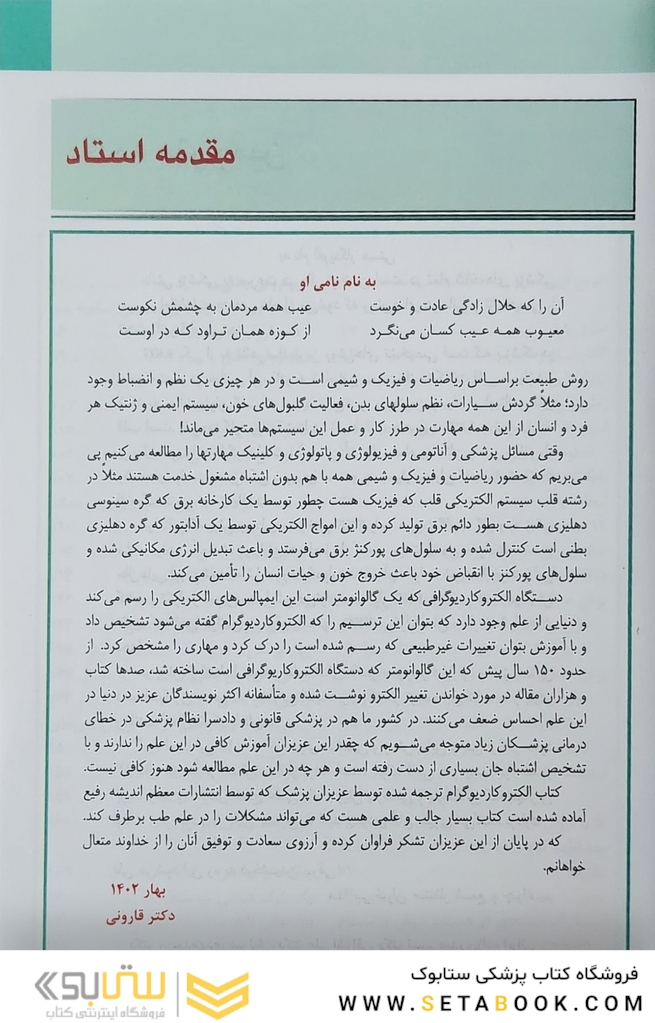 مقدمه استاد
به نام نامی او
آن را که حلال زادگی عادت و خوست عیب همه مردمان به چشمش نکوست
معیوب همه عیب کسان می‌نگرد از کوزه همان تراود که در اوست
روش طبیعت براساس ریاضیات و فیزیک و شیمی است و در هر چیزی یک نظم و انضباط وجود
دارد؛ مثلاً گردش سیارات، نظم سلولهای بدن، فعالیت گلبول‌های خون، سیستم ایمنی و ژنتیک هر
فرد و انسان از این همه مهارت در طرز کار و عمل این سیستم‌ها متحیر می‌ماند!
وقتی مسائل پزشکی و آناتومی و فیزیولوژی و پاتولوژی و کلینیک مهارتها را مطالعه می‌کنیم پی
می‌بریم که حضور ریاضیات و فیزیک و شیمی همه با هم بدون اشتباه مشغول خدمت هستند مثلاً در
رشته قلب سیستم الکتریکی قلب که فیزیک هست چطور توسط یک کارخانه برق که گره سینوسی
دهلیزی هست بطور دائم برق تولید کرده و این امواج الکتریکی توسط یک آدابتور که گره دهلیزی
بطنی است کنترل شده و به سلول‌های پورکنژ برق می‌فرستد و باعث تبدیل انرژی مکانیکی شده و
سلول‌های پورکنز با انقباض خود باعث خروج خون و حیات انسان را تأمین می‌کند.
دستگاه الکتروکاردیوگرافی که یک گالوانومتر است این ایمپالس‌های الکتریکی را رسم می‌کند
و دنیایی از علم وجود دارد که بتوان این ترسیم را که الکتروکاردیوگرام گفته می‌شود تشخیص داد
و با آموزش بتوان تغییرات غیرطبیعی که رسم شده است را درک کرد و مهاری را مشخص کرد. از
حدود ۱۵۰ سال پیش که این گالوانومتر که دستگاه الکتروکاریوگرافی است ساخته شد، صدها کتاب
و هزاران مقاله در مورد خواندن تغییر الکترو نوشت شده و متأسفانه اکثر نویسندگان عزیز در دنیا در
این علم احساس ضعف می‌کنند. در کشور ما هم در پزشکی قانونی و دادسرا نظام پزشکی در خطای
درمانی پزشکان زیاد متوجه می‌شویم که چقدر این عزیزان آموزش کافی در این علم را ندارند و با
تشخیص اشتباه جان بسیاری از دست رفته است و هر چه در این علم مطالعه شود هنوز کافی نیست.
کتاب الکتروکاردیوگرام ترجمه شده توسط عزیزان پزشک که توسط انتشارات معظم اندیشه رفیع
آماده شده است کتاب بسیار جالب و علمی هست که می‌تواند مشکلات را در علم طب برطرف کند.
که در پایان از این عزیزان تشکر فراوان کرده و آرزوی سعادت و توفیق آنان را از خداوند متعال
خواهانم.
بهار ۱۴۰۲
دکتر قارونی
فروشگاه کتاب پزشکی ستابوک
WWW.SETABOOK.COM
ستابوک
فروشگاه اینترنتی کتاب